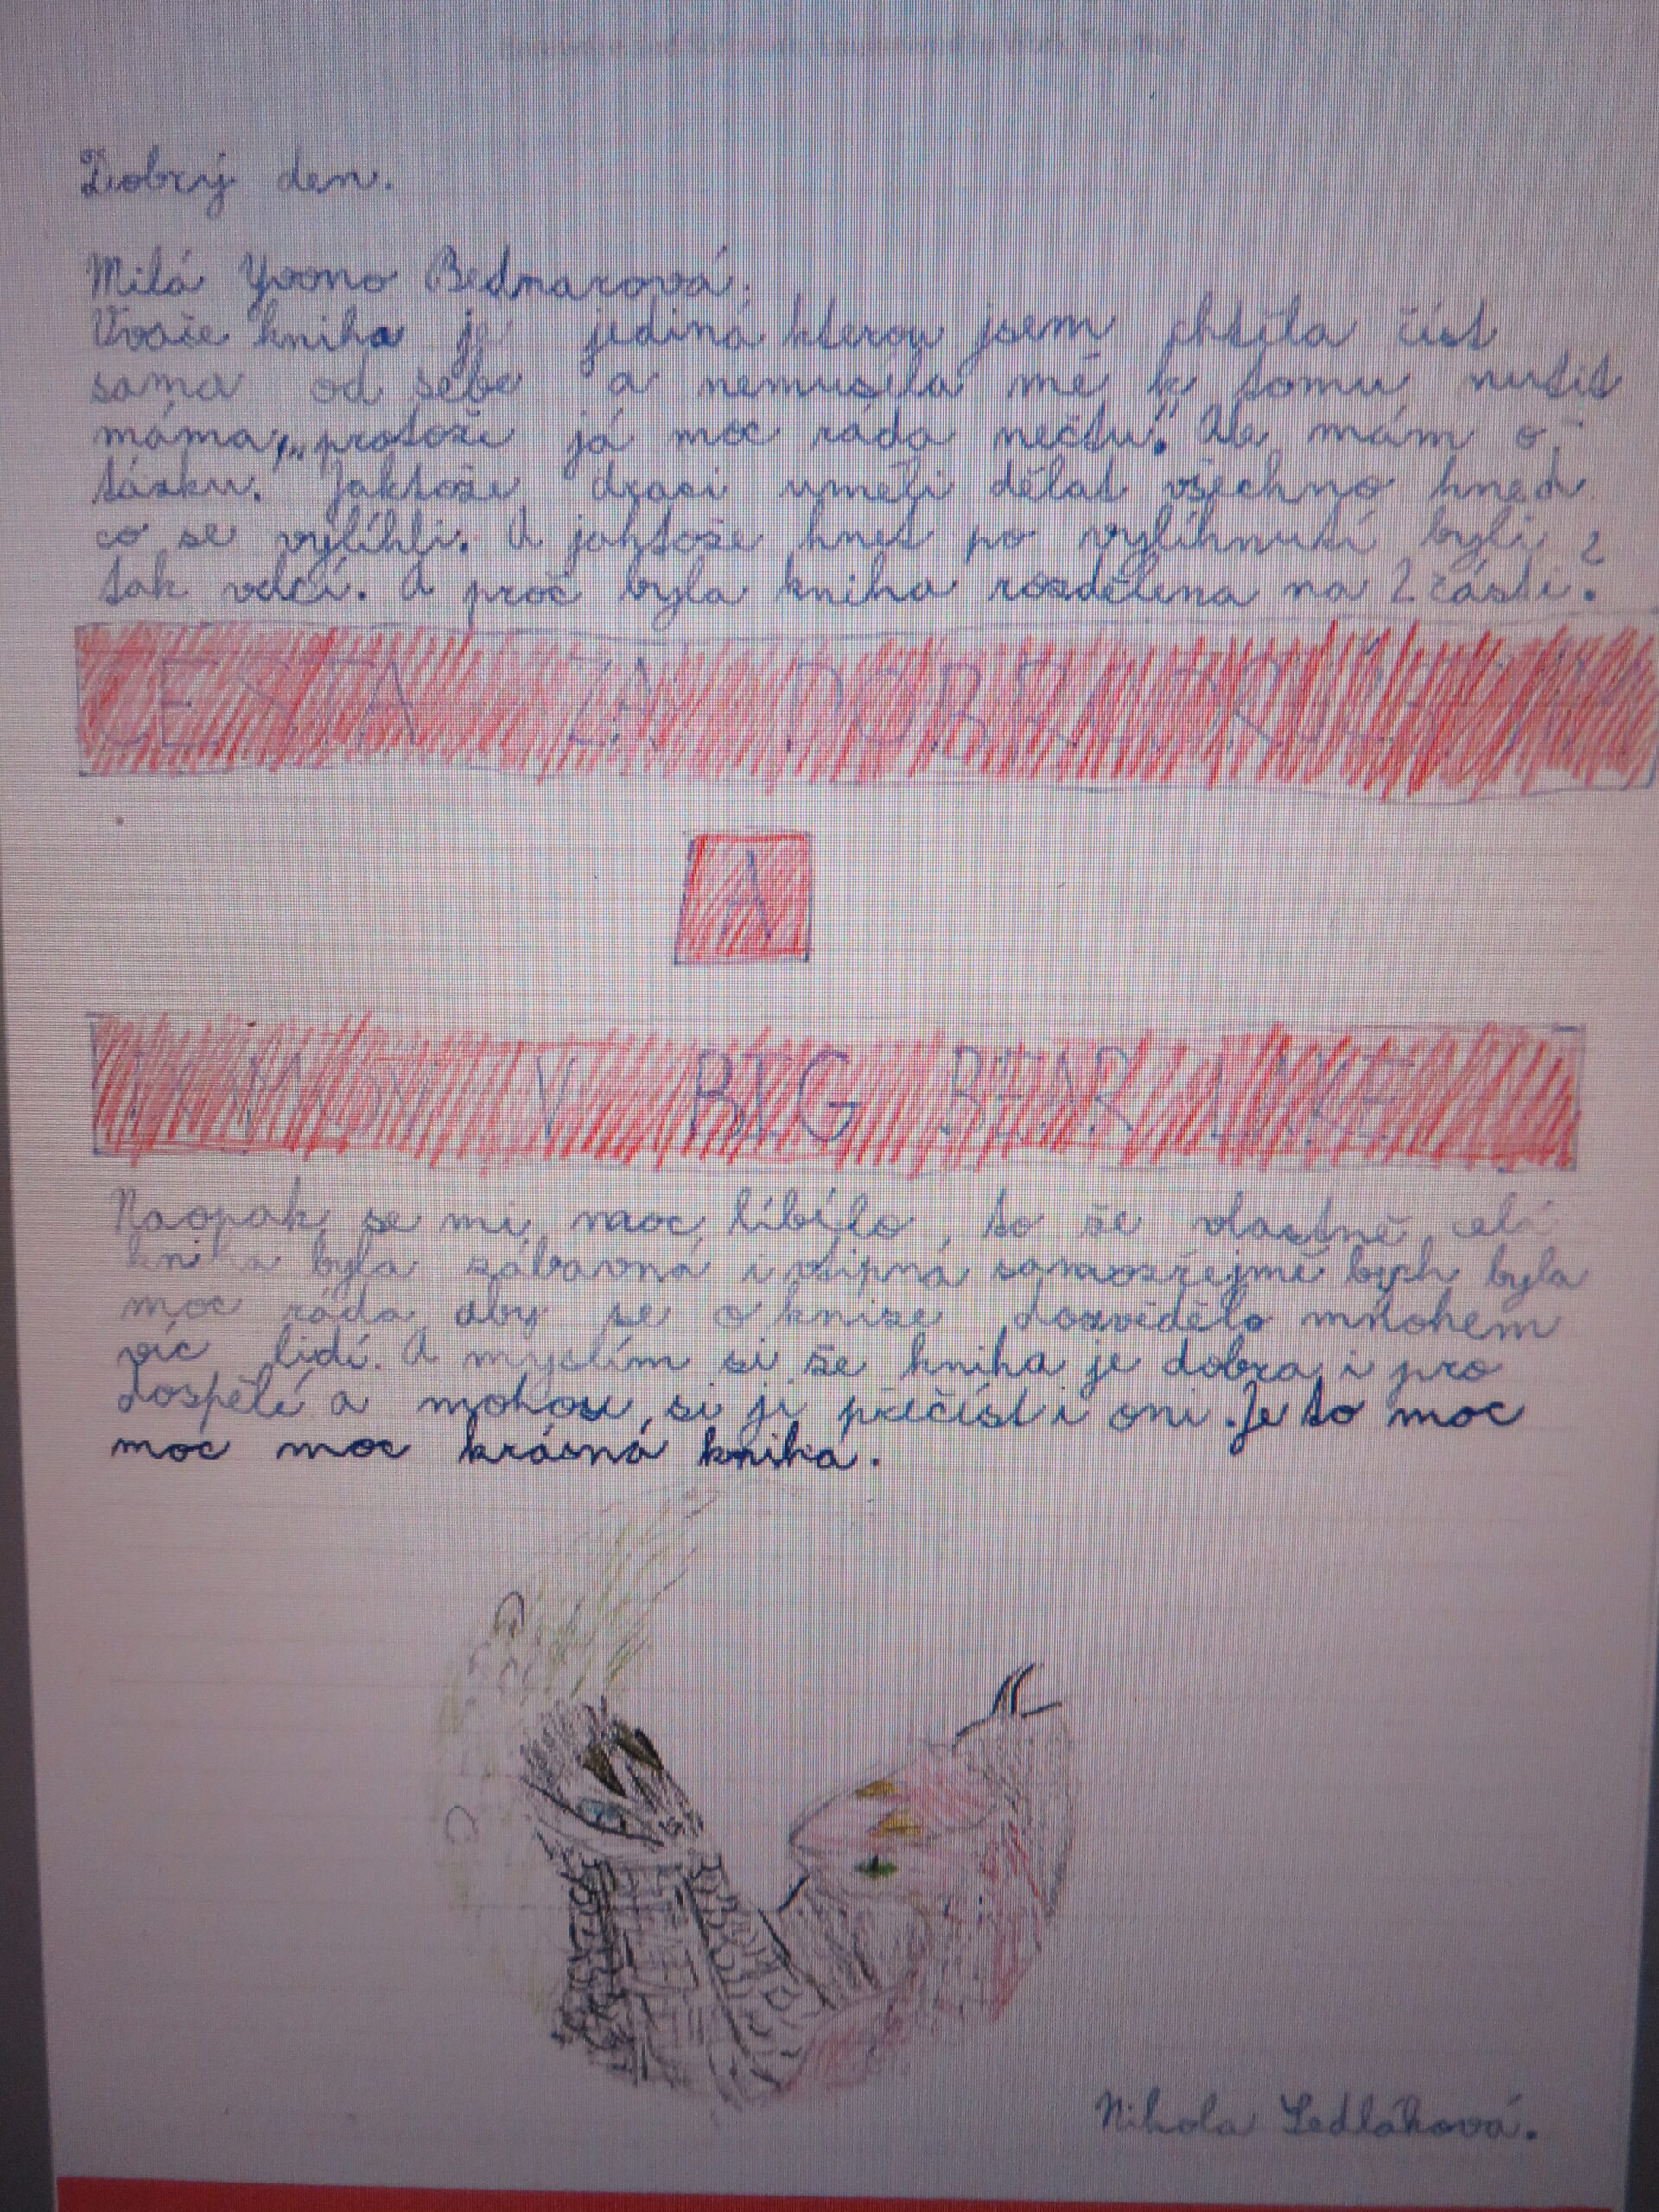 Dobrý den.
Milá Yvono Bednarová,
Vaše kniha je jediná kterou jsem chtěla číst
sama od sebe a nemusela mě k tomu nutit
máma, „protože já moc ráda nečtu". Ale mám o-
tázku. Jaktože draci uměli dělat všechno hned
co se vylíhli. A jaktože hnet po vylíhnutí byli
tak velcí. A proč byla kniha rozdělena na 2 části?
CESTA ZA DOBRA
A
V BIG BEAR LAKE
Naopak se mi moc líbílo, to že vlastně celá
kniha byla zábavná i vtipná samozřejmě bych byla
moc ráda aby se o knize dozvědělo mnohem
víc lidí. A myslím si že kniha je dobra i pro
dospělé a mohou si ji přečíst i oni. Je to moc
moc moc krásná kniha.
Nikola Sedláková.